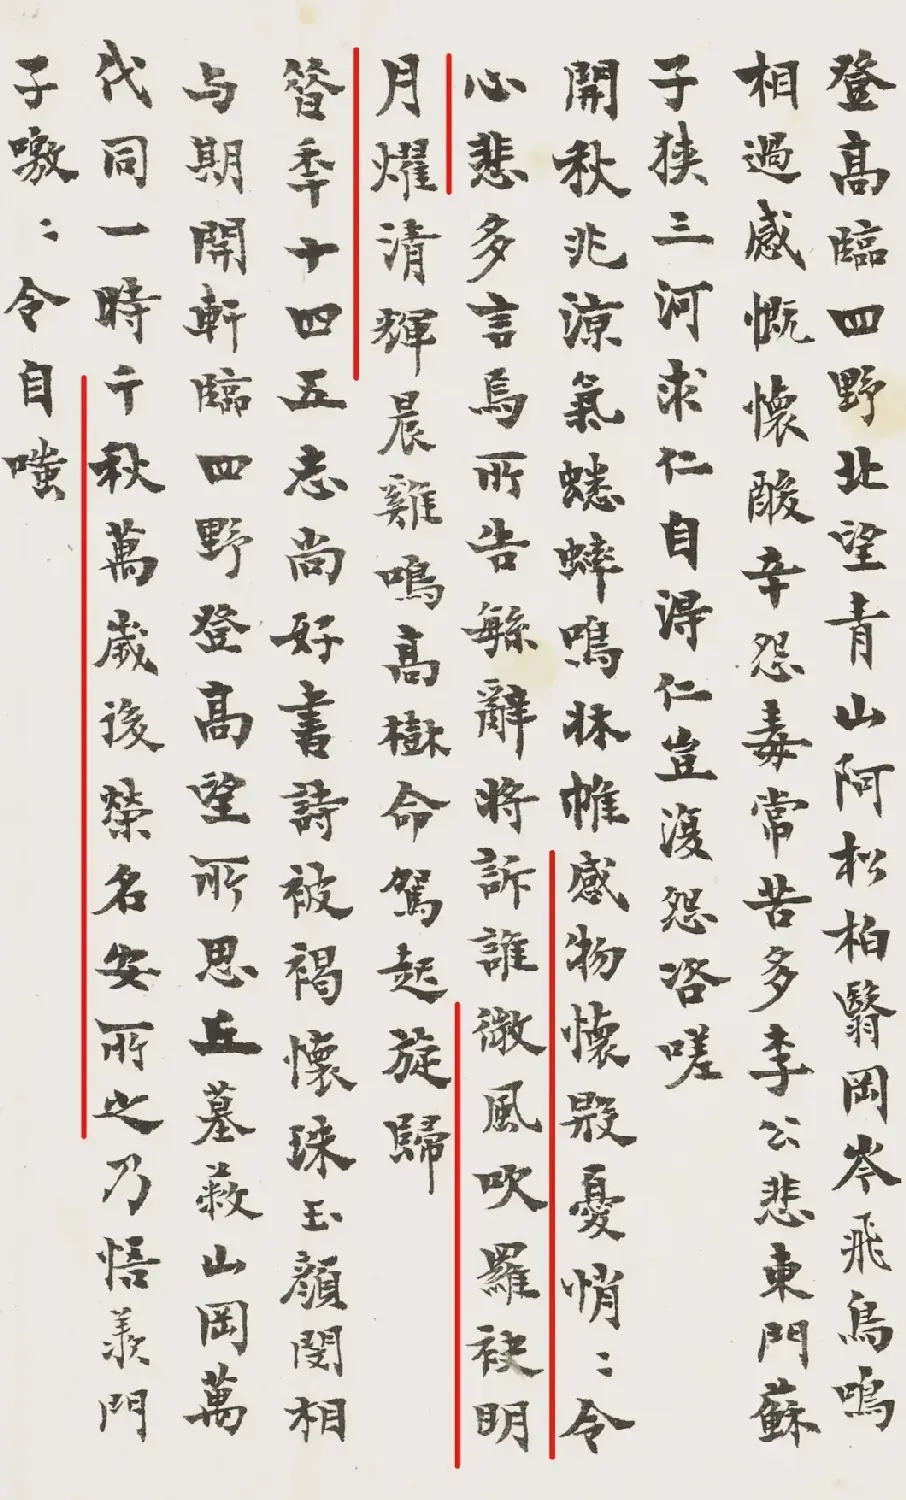 登高臨四野北望青山阿松柏翳岡岑飛鳥鳴
相過感慨懷酸辛怨毒常苦多李公悲東門蘇
子狹三河求仁自得仁豈復怨咨嗟
開秋兆涼氣蟋蟀鳴牀帷感物懷殷憂悄〻令
心悲多言焉所告繁辭將訴誰微風吹羅袂明
月耀清輝晨雞鳴高樹命駕起旋歸
昝秊十四五志尚好書詩被褐懷珠玉顏閔相
与期開軒臨四野登高望所思丘墓蔽山岡萬
代同一時千秋萬歲後榮名安所之乃悟羨門
子噭〻令自嗤